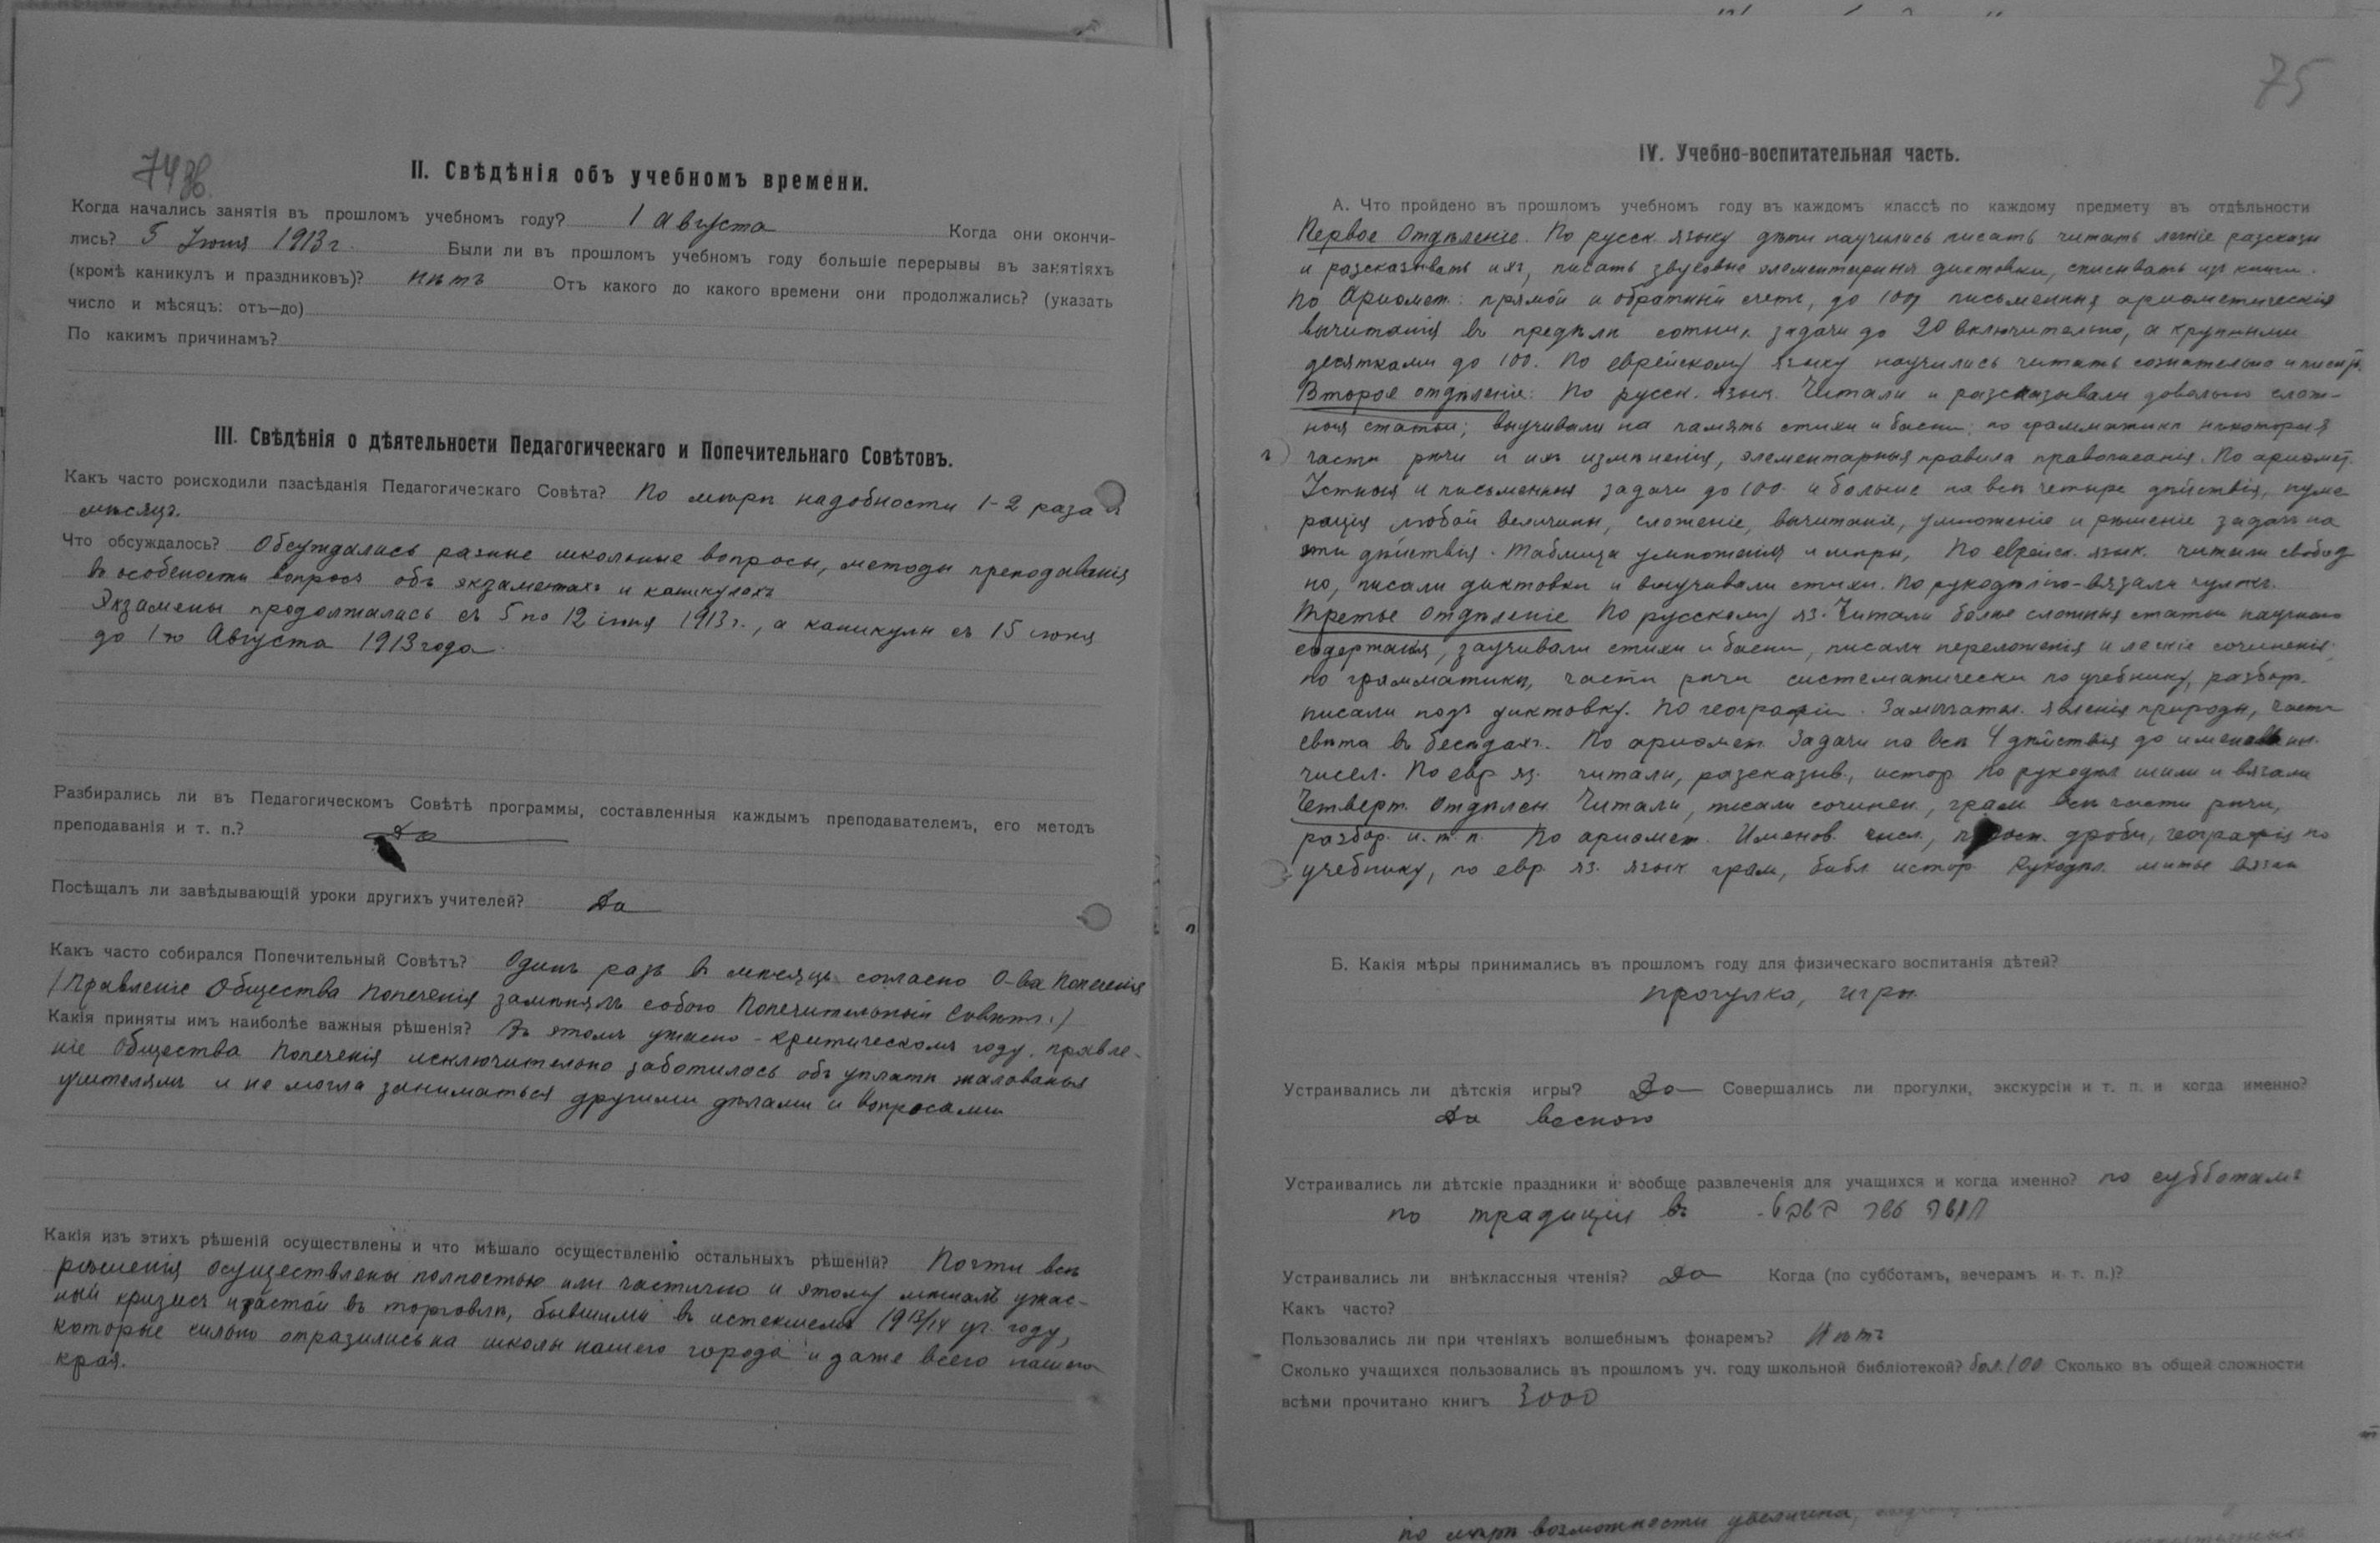 74 об.
II. Свѣдѣнія объ учебномъ времени.
Когда начались занятія въ прошломъ учебномъ году? 1 Августа Когда они окончи-
лись? 5 Іюня 1913 г. Были ли въ прошломъ учебномъ году большіе перерывы въ занятіяхъ
(кромѣ каникулъ и праздниковъ)? нѣтъ Отъ какого до какого времени они продолжались? (указать
число и мѣсяцъ: отъ—до)
По какимъ причинамъ?
III. Свѣдѣнія о дѣятельности Педагогическаго и Попечительнаго Совѣтовъ.
Какъ часто роисходили пзасѣданія Педагогическаго Совѣта? По мѣрѣ надобности 1-2 раза в
мѣсяцъ.
Что обсуждалось? Обсуждались разные школьные вопросы, методы преподаванія
въ особености вопросъ объ экзаменахъ и каникулахъ
Экзамены продолжалась съ 5 по 12 іюня 1913 г., а каникулы съ 15 іюня
до 1го Августа 1913 года.
Разбирались ли въ Педагогическомъ Совѣтѣ программы, составленныя каждымъ преподавателемъ, его методъ
преподаванія и т. п.? Да
Посѣщалъ ли завѣдывающій уроки другихъ учителей? Да
Какъ часто собирался Попечительный Совѣтъ? Одинъ разъ в мѣсяцъ согласно О-ва Попеченія
(Правленіе Общества Попеченія замѣнялъ собою Попечительный Совѣтъ.)
Какія приняты имъ наиболѣе важныя рѣшенія? Въ этомъ ужасно-критическомъ году, правле-
ніе Общества Попеченія исключительно заботилось объ уплатѣ жалованья
учителямъ и не могла заниматься другими дѣлами и вопросами
Какія изъ этихъ рѣшеній осуществлены и что мѣшало осуществленію остальныхъ рѣшеній? Почти всѣ
рѣшенія осуществлены полностью или частично и этому мѣшалъ ужас-
ный кризисъ и застой въ торговлѣ, бывшими въ истекшемъ 1913/14 уч. году,
которые сильно отразились на школы нашего города и даже всего нашего
края.
75
IV. Учебно-воспитательная часть.
А. Что пройдено въ прошломъ учебномъ году въ каждомъ классѣ по каждому предмету въ отдѣльности
Первое Отдѣленіе. По русск. языку дѣти научились писать читать легкіе разсказы
и разсказывать ихъ, писать звуковые элементарныя диктовки, списывать изъ книги.
По Ариѳмет.: прямой и обратный счетъ, до 100, письменныя ариѳметическія
вычитанія въ предѣлѣ сотни, задачи до 20 включительно, а крупными
десятками до 100. По еврейскому языку научились читать сознательно и писать.
Второе отдѣленіе: По русск. язык. Читали и разсказывали довольно слож-
ныя статьи; выучивали на память стихи и басни; по грамматикѣ нѣкоторыя
части рѣчи и ихъ измѣненія, элементарныя правила правописанія. По ариѳмет.
Устныя и письменныя задачи до 100 и больше на всѣ четыре дѣйствія, нуме-
рація любой величины, сложеніе, вычитаніе, умноженіе и рѣшеніе задачъ на
эти дѣйствія. Таблица умноженія и мѣры, По еврейск. язык. читали свобод
но, писали диктовки и выучивали стихи. По рукодѣлію-вязали чулки.
Третье Отдѣленіе По русскому яз. Читали болѣе сложныя статьи научнаго
содержанія, заучивали стихи и басни, писали переложенія и легкіе сочиненія,
по грамматикѣ, части рѣчи систематически по учебнику, разбор.
писали подъ диктовку. По географіи. Замѣчател. явленія природы, части
свѣта въ бесѣдахъ. По ариѳмет. Задачи на всѣ 4 дѣйствія до именован.
чисел. По евр яз. читали, разсказыв., истор По рукодѣл шили и вязали
Четверт. Отдѣлен Читали, писали сочинен., грам всѣ части рѣчи,
разбор. и. т. п. По ариѳмет. Именов. числ., прост. дроби, географія по
учебнику, по евр. яз. язык грам, библ истор Рукодѣл. шитье вязан
Б. Какія мѣры принимались въ прошломъ году для физическаго воспитанія дѣтей?
прогулка, игры.
Устраивались ли дѣтскія игры? Да Совершались ли прогулки, экскурсіи и т. п. и когда именно?
Да весною
Устраивались ли дѣтскіе праздники и вообще развлеченія для учащихся и когда именно? по субботамъ
по традиціи въ
Устраивались ли внѣклассныя чтенія? Да Когда (по субботамъ, вечерамъ и т. п.)?
Какъ часто?
Пользовались ли при чтеніяхъ волшебнымъ фонаремъ? Нѣтъ
Сколько учащихся пользовались въ прошломъ уч. году школьной библіотекой? бол. 100 Сколько въ общей сложности
всѣми прочитано книгъ 3000
по мѣрѣ возможности увеличена,